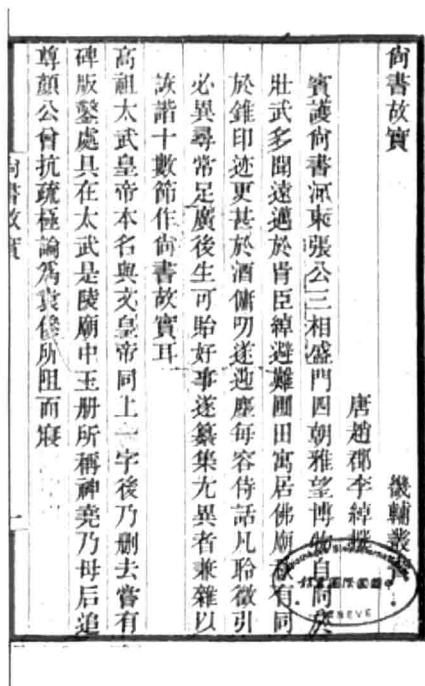 尚書故實
畿輔叢書
唐趙郡李綽撰
賓護尚書河東張公三相盛門四朝雅望博物自同於
壯武多聞遠邁於胥臣綽避難圃田寓居佛廟秩有同
於錐印迹更甚於酒傭叨遂迤塵每容侍話凡聆徵引
必異尋常足廣後生可貽好事遂纂集尤異者兼雜以
詼諧十數節作尚書故實耳
高祖太武皇帝本名與文皇帝同上一字後乃刪去嘗有
碑版鑿處具在太武是陵廟中玉册所稱神堯乃母后追
尊顏公曾抗疏極論爲袁傪所阻而寢
尚書故實
一